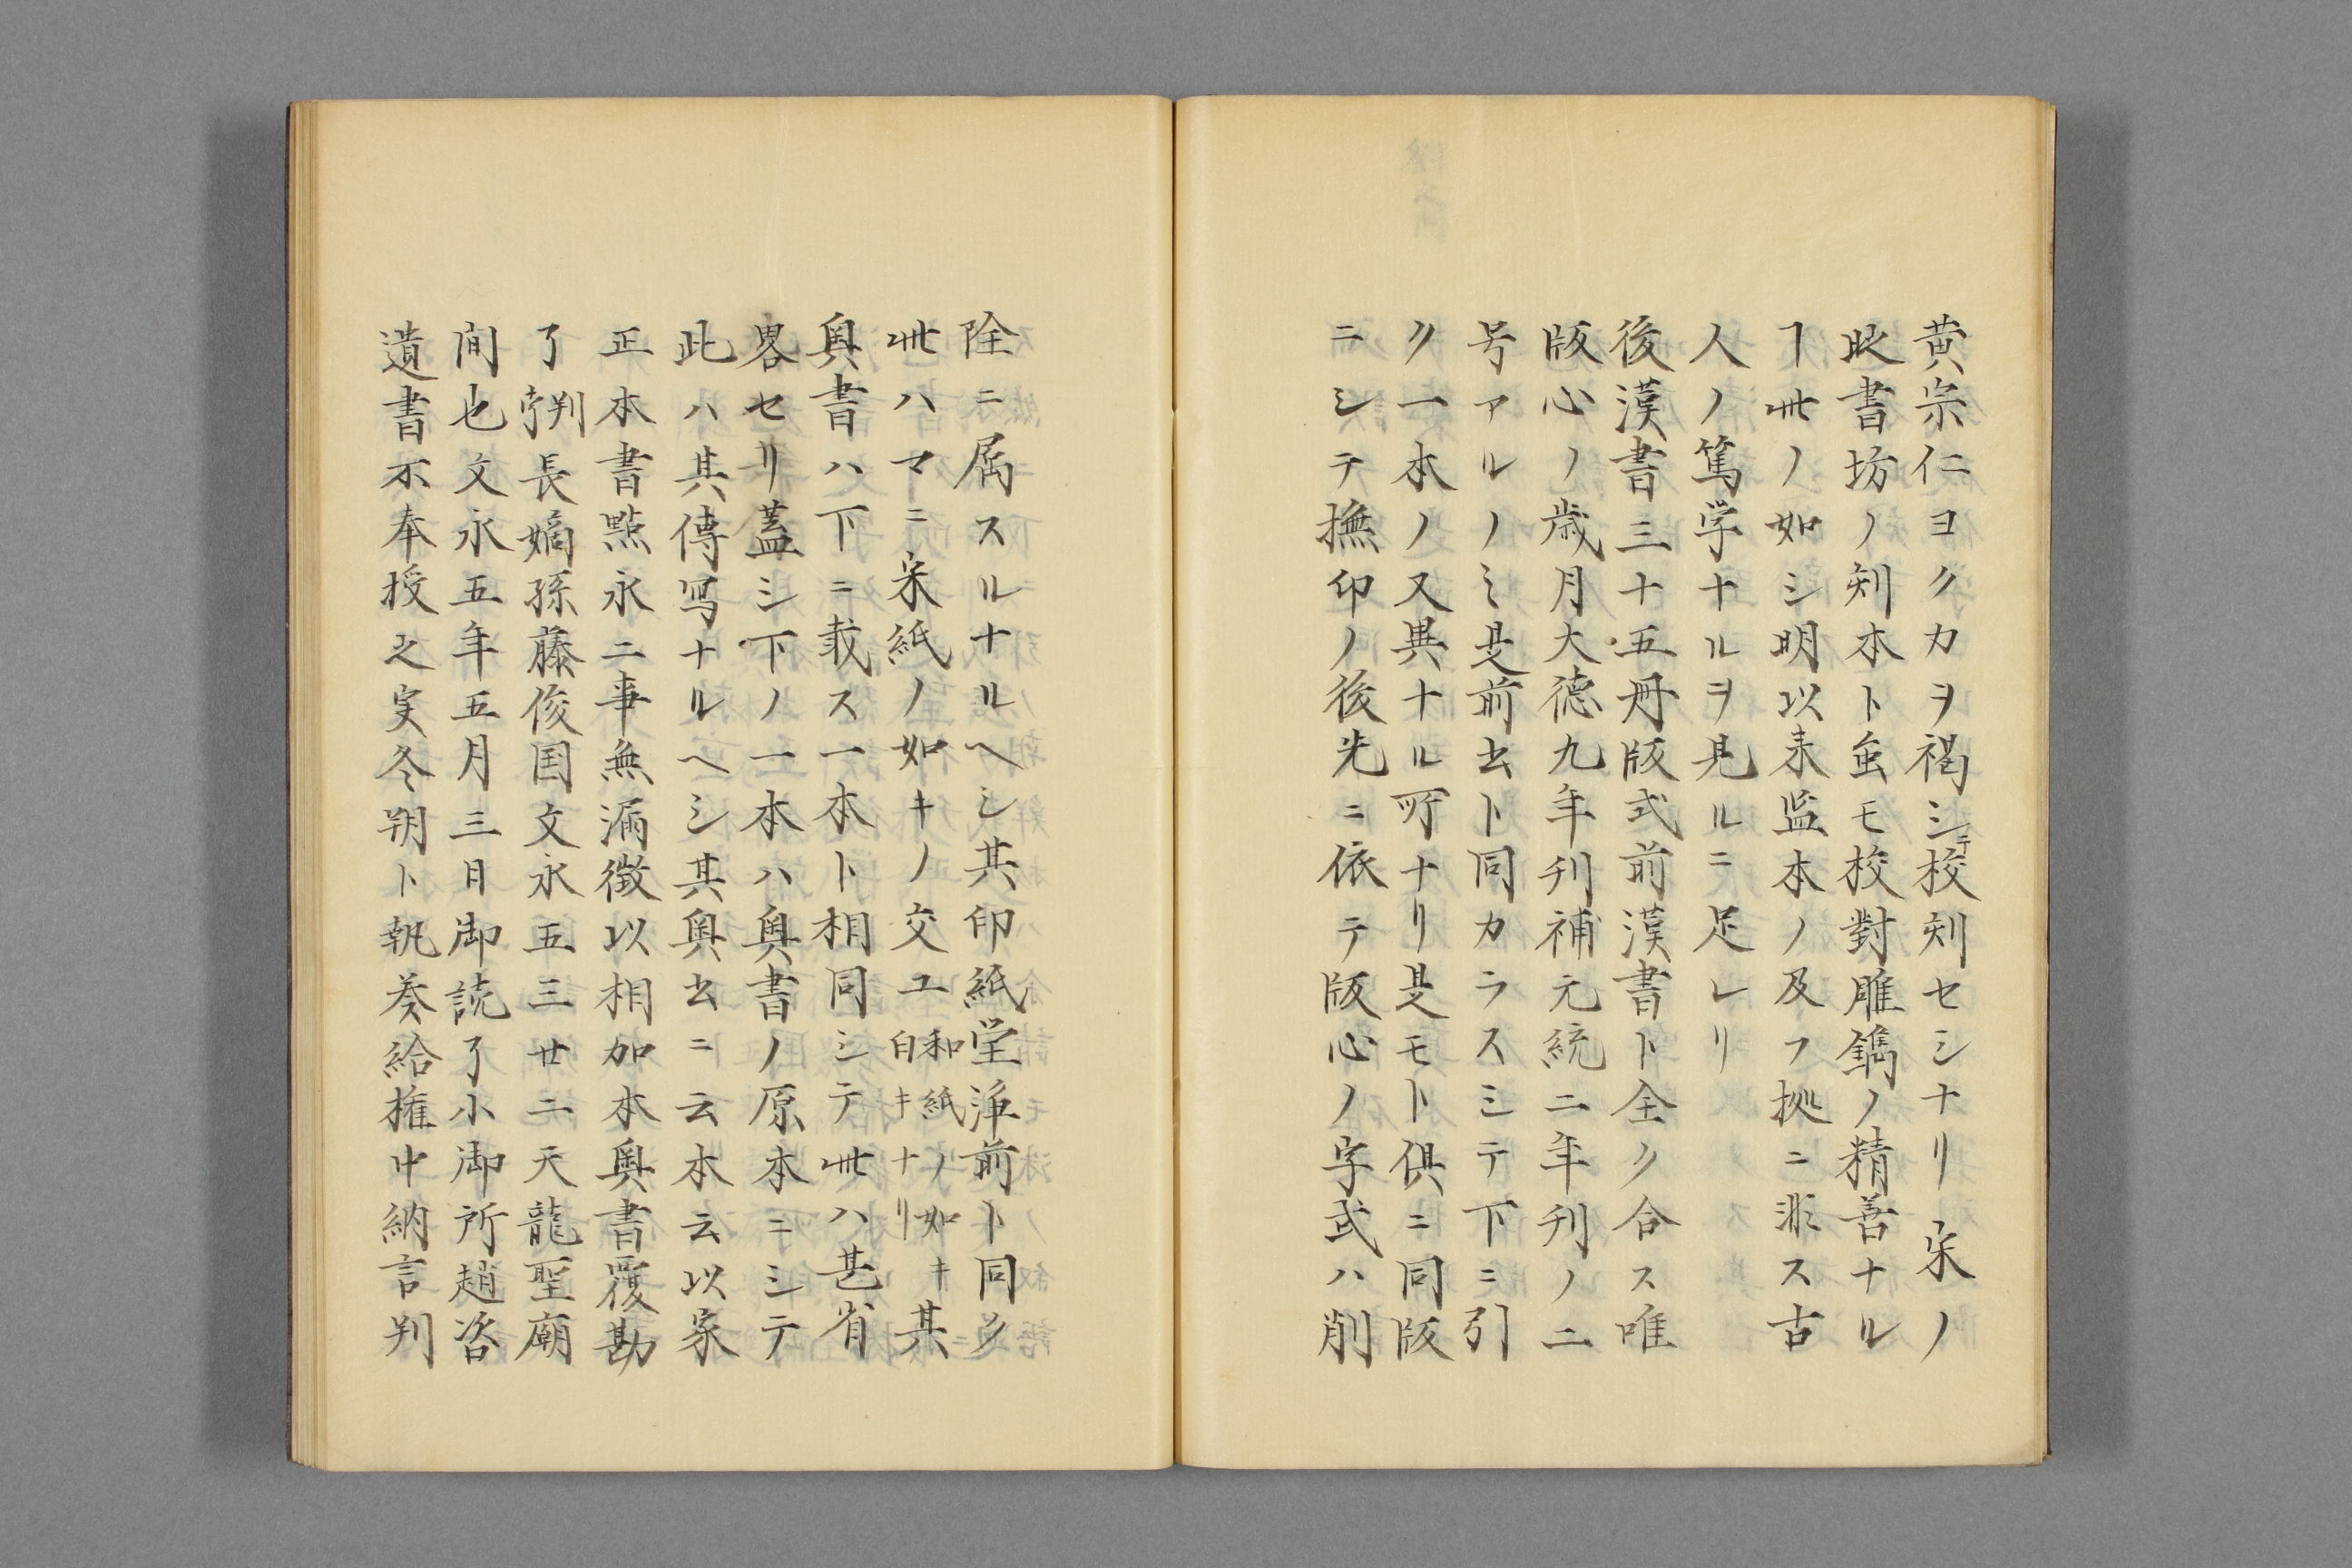 黄宗仁ヨク力ヲ褐シテ校刻セシナリ宋ノ
此書坊ノ刻本ト𧈧モ校對雕鐫ノ精善ナル
ヿ丗ノ如シ明以来监本ノ及フ拠ニ非ス古
人ノ篤学ナルヲ見ルニ足レリ
後漢書三十五冊版式前漢書ト全ク合ス唯
版心ノ歳月大徳九年刋補元統二年刋ノ二
号アルノミ是前去ト同カラスシテ下ニ引
ク一本ノ又異ナル所ナリ是モト倶ニ同版
ニシテ撫印ノ後先ニ依テ版心ノ字或ハ削
除ニ属スルナルヘシ其印紙堂淳前ト同ク
丗ハマヽニ宋紙ノ如キノ交ユ和紙ノ如キ白キナリ其
奥書ハ下ニ載ス一本ト相同シテ丗ハ甚省
畧セリ蓋シ下ノ一本ハ奥書ノ原本ニシテ
此ハ其傳写ナルヘシ其奥去ニ云本云以家
正本書點永二事無漏徴以相加本奥書覆勘
了判長嫡孫藤俊国文永五三廿二天龍聖廟
间也文永五年五月三日御読了小御所趙咨
遺書不奉授之实冬朔卜執奏給権中納言判